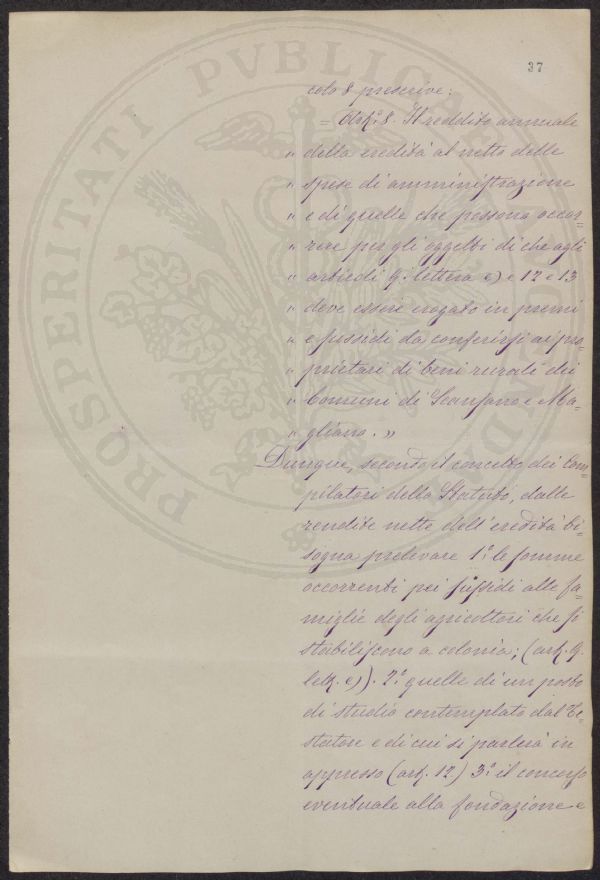 37
colo 8 prescrive:
= Art.º 8. Il reddito annuale
" della eredità al netto delle
" spese di amministrazione
" e di quelle che possono occor=
" rere per gli oggetti di che agli
" articoli 9. lettera e) e 12 e 13
" deve essere erogato in premi
" e sussidi da conferirsi ai pro=
" prietari di beni rurali dei
" Comuni di Scanzano e Ma=
" gliano. "
Dunque, secondo il concetto dei Com=
pilatori dello Statuto, dalle
rendite nette dell'eredità bi=
sogna prelevare 1.º le somme
occorrenti pei sussidi alle fa=
miglie degli agricoltori che si
stabiliscono a colonia; (art. 9.
lett. e)). 2.º quelle di un posto
di studio contemplato dal Te=
statore e di cui si parlerà in
appresso (art. 12.) 3.º il concorso
eventuale alla fondazione e
PROSPERITATI PVBLICAE